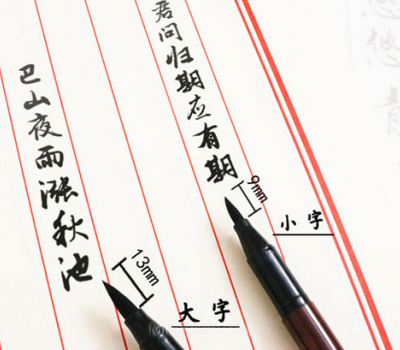 君问归期应有期
巴山夜雨涨秋池
9mm
小字
13mm
大字